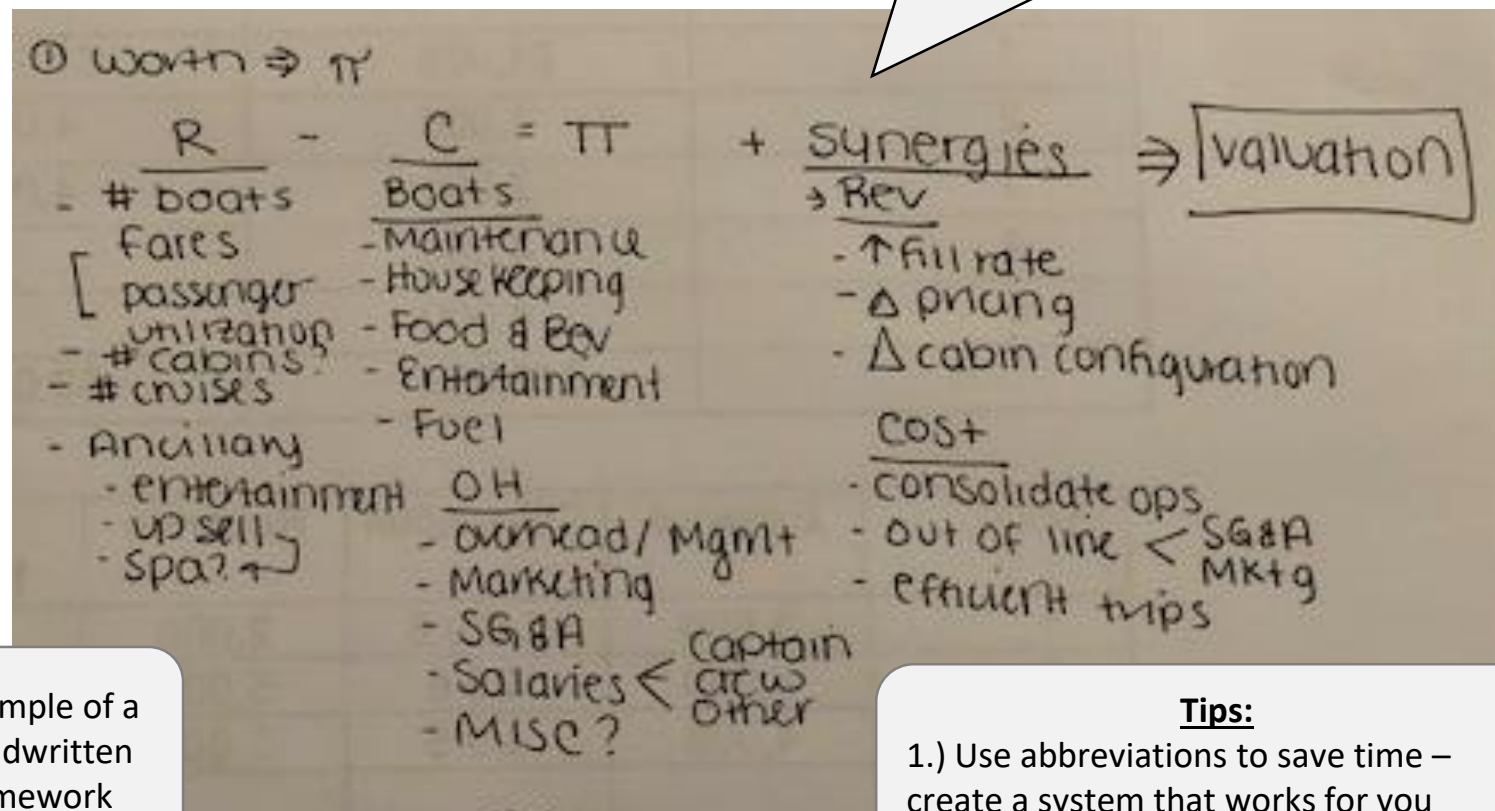 ① worth ⇒ π
R - C = π + Synergies ⇒ valuation
- # boats
fares
[ passenger
utilization
- # cabins?
- # cruises
- Ancillary
- entertainment
- up sell
- spa?
Boats
- Maintenance
- Housekeeping
- Food & Bev
- Entertainment
- Fuel
OH
- overhead / Mgmt
- Marketing
- SG&A
- Salaries < captain
crew
other
- MISC?
→ Rev
- ↑ fill rate
- Δ pricing
- Δ cabin configuration
Cost
- consolidate ops
- out of line < SG&A
Mktg
- efficient trips
mple of a
dwritten
mework
Tips:
1.) Use abbreviations to save time –
create a system that works for you